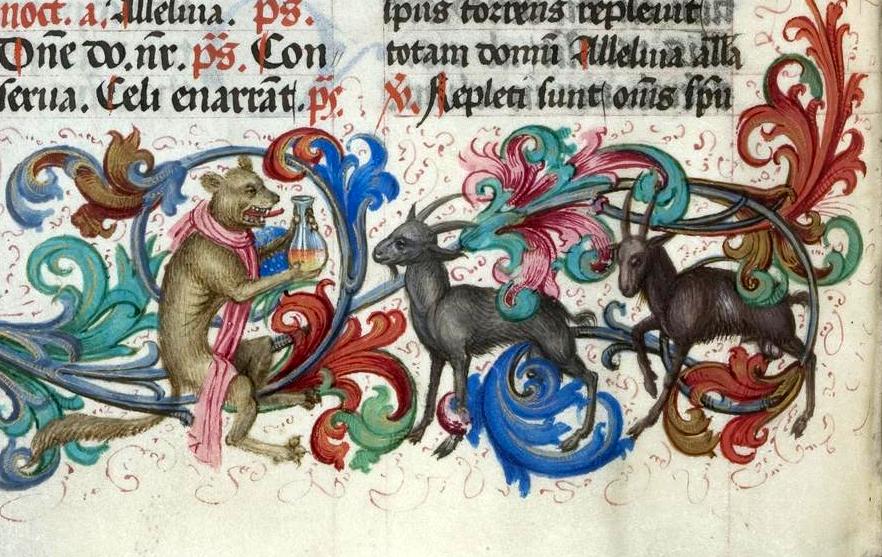 noct. a. Alleluia. ps.
Dn̄e do. nr̄. ps̄. Con
serua. Celi enarrāt. ps̄.
spūs torrens repleuit
totam domū Alleluia all̄a
V. Repleti sunt om̄s spū